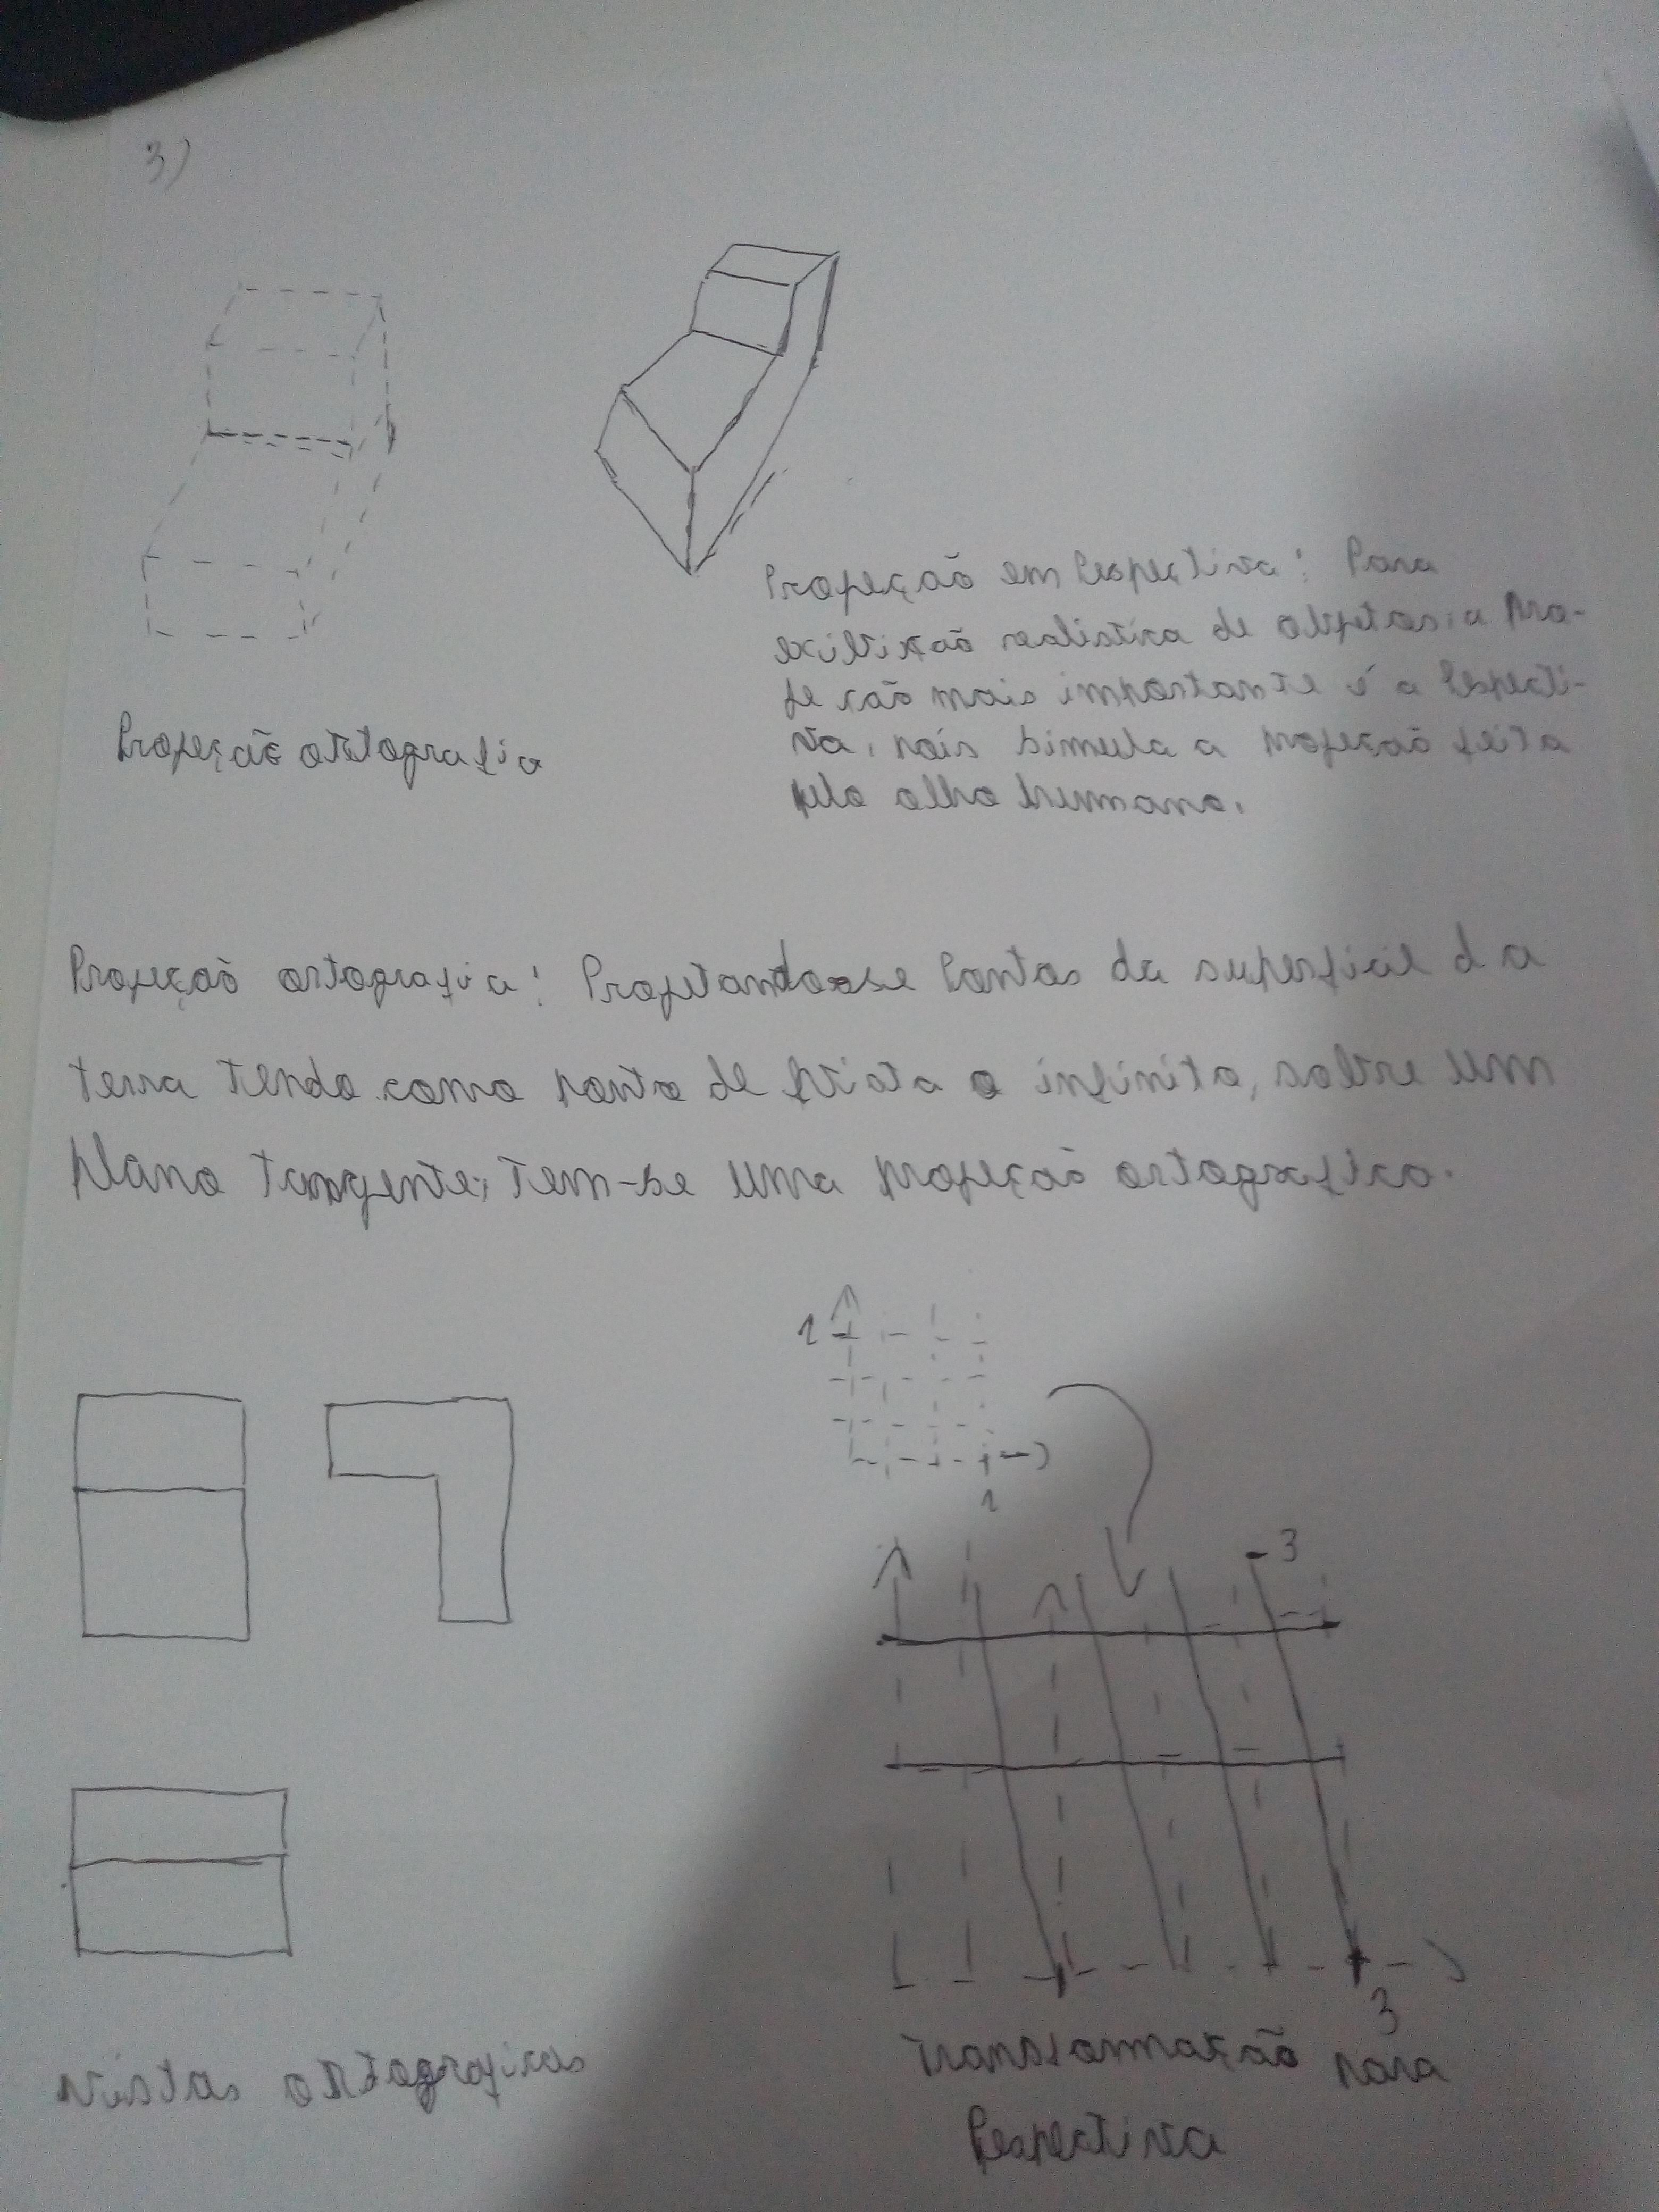 3)
Projeção ortografia
Projeção em Perspectiva: Para
exibição realistica de objetos, a pro-
jeção mais importante é a Perspecti-
va, pois simula a projeção feita
pelo olho humano.
Projeção ortografia: Projetando-se Pontos da superficie da
terra tendo como ponto de vista o infinito, sobre um
plano tangente, Tem-se uma projeção ortografica.
1
1
3
3
vistas ortograficas
Transformação para
Perspectiva